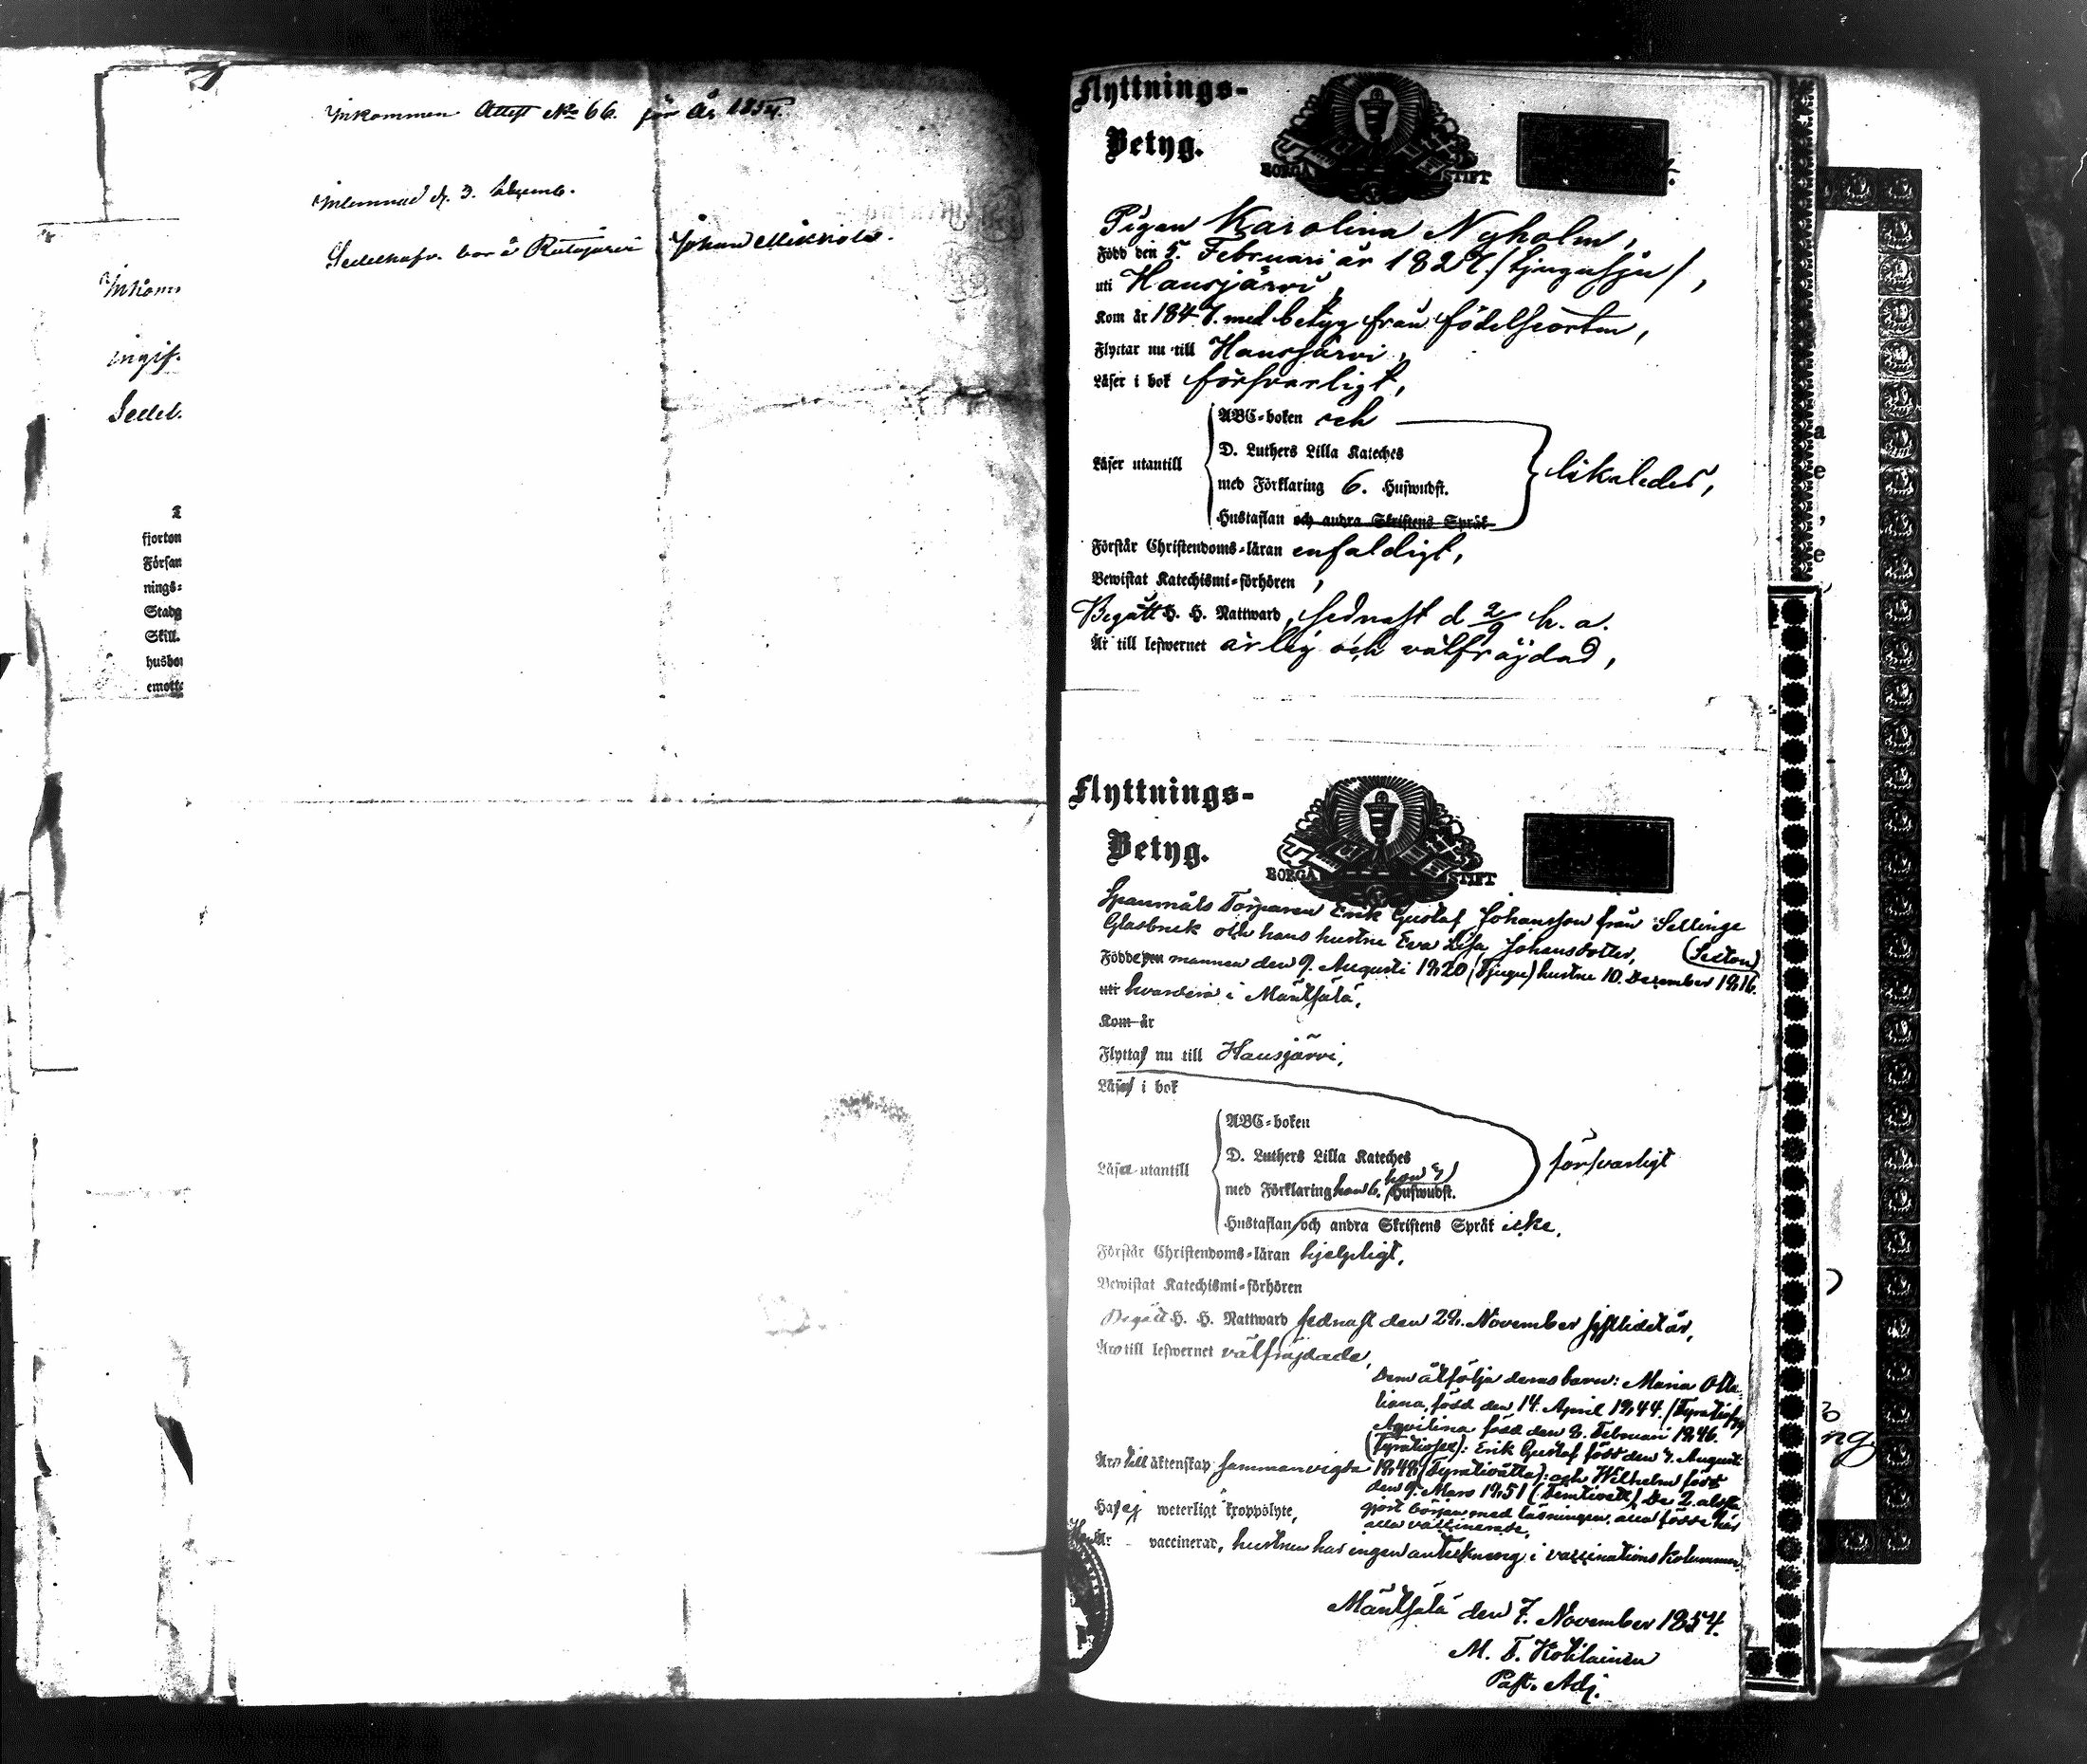 Inkommen Attest No 66. för År 1854.
Inlemnad d. 3. Decemb.
Sedelhafv. bor å Johan
Inkom
ingif.
Sedel.
fjorton
Försam
nings-
Stadg
Skill.
husbo
emotta
Flyttnings-
Betyg.
BORGÅ STIFT
Pigan Karolina Nyholm,
Född den 5. Februari år 1827. /tjugusju/,
uti Hausjärvi,
Kom år 1847. med betyg från födelseorten,
Flyttar nu till Hausjärvi,
Läser i bok försvarligt,
ABC-boken och
Läser utantill
D. Luthers Lilla Kateches
med Förklaring 6. Hufwudst.
likaledes,
Hustaflan och andra Skriftens Språk
Förstår Christendoms-läran enfaldigt,
Bewistat Katechismi-förhören,
Begått H. H. Nattward, sednast d 2/9 h. a.
Är till lefwernet ärlig och välfräjdad,
Flyttnings-
Betyg.
BORGÅ STIFT
Spanmåls Torparen Erik Gustaf Johansson från Sellinge
Glasbruk och hans hustru Eva Lisa Johansdotter,
Födde den mannen den 9. Augusti 1820 (Tjugu) hustru 10. December 1816. (Sexton)
uti hvardera i Mäntsälä,
Kom år
Flytta nu till Hausjärvi,
Läsa i bok
ABC-boken
Läsa utantill
D. Luthers Lilla Kateches
med Förklaring han 6. hon 5 Hufwudst.
försvarligt
Hustaflan och andra Skriftens Språk icke,
Förstår Christendoms-läran hjelpligt,
Bewistat Katechismi-förhören
Begått H. H. Nattward sednast den 28. November sistlidet år,
Äro till lefwernet välfräjdade,
Dem åtfölja deras barn: Maria Otte-
liana, född den 14. April 1844.
Aqvilina född den 8. Februari 1846.
(Fyratiosex): Erik Gustaf född den 4. Augusti
1848 (Fyratioåtta): och Wilhelm född
den 9. Mars 1851 (Femtioett). De 2. äldsta
gjort början med läsningen, alla födde här
alla vaccinerade.
Äro till äktenskap sammanvigda
Hafva ej weterligt kroppslyte,
Är vaccinerad, hustrun har ingen anteckning i vaccinations kolumnen
Mäntsälä den 7. November 1854.
M. T. Kohlainen
Past. Adj.